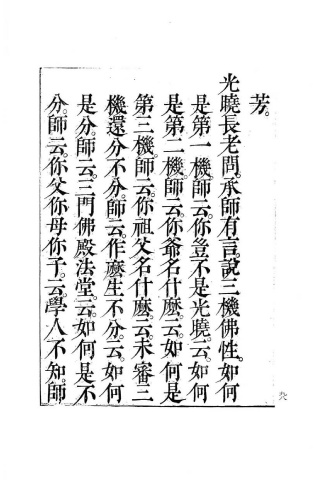 芳。
光曉長老問。承師有言。說三機佛性。如何
是第一機。師云。你豈不是光曉。云。如何
是第二機。師云。你爺名什麼。云。如何是
第三機。師云。你祖父名什麼。云。未審三
機還分不分。師云。作麼生不分。云。如何
是分。師云。三門佛殿法堂。云。如何是不
分。師云。你父你母你子。云。學人不知。師